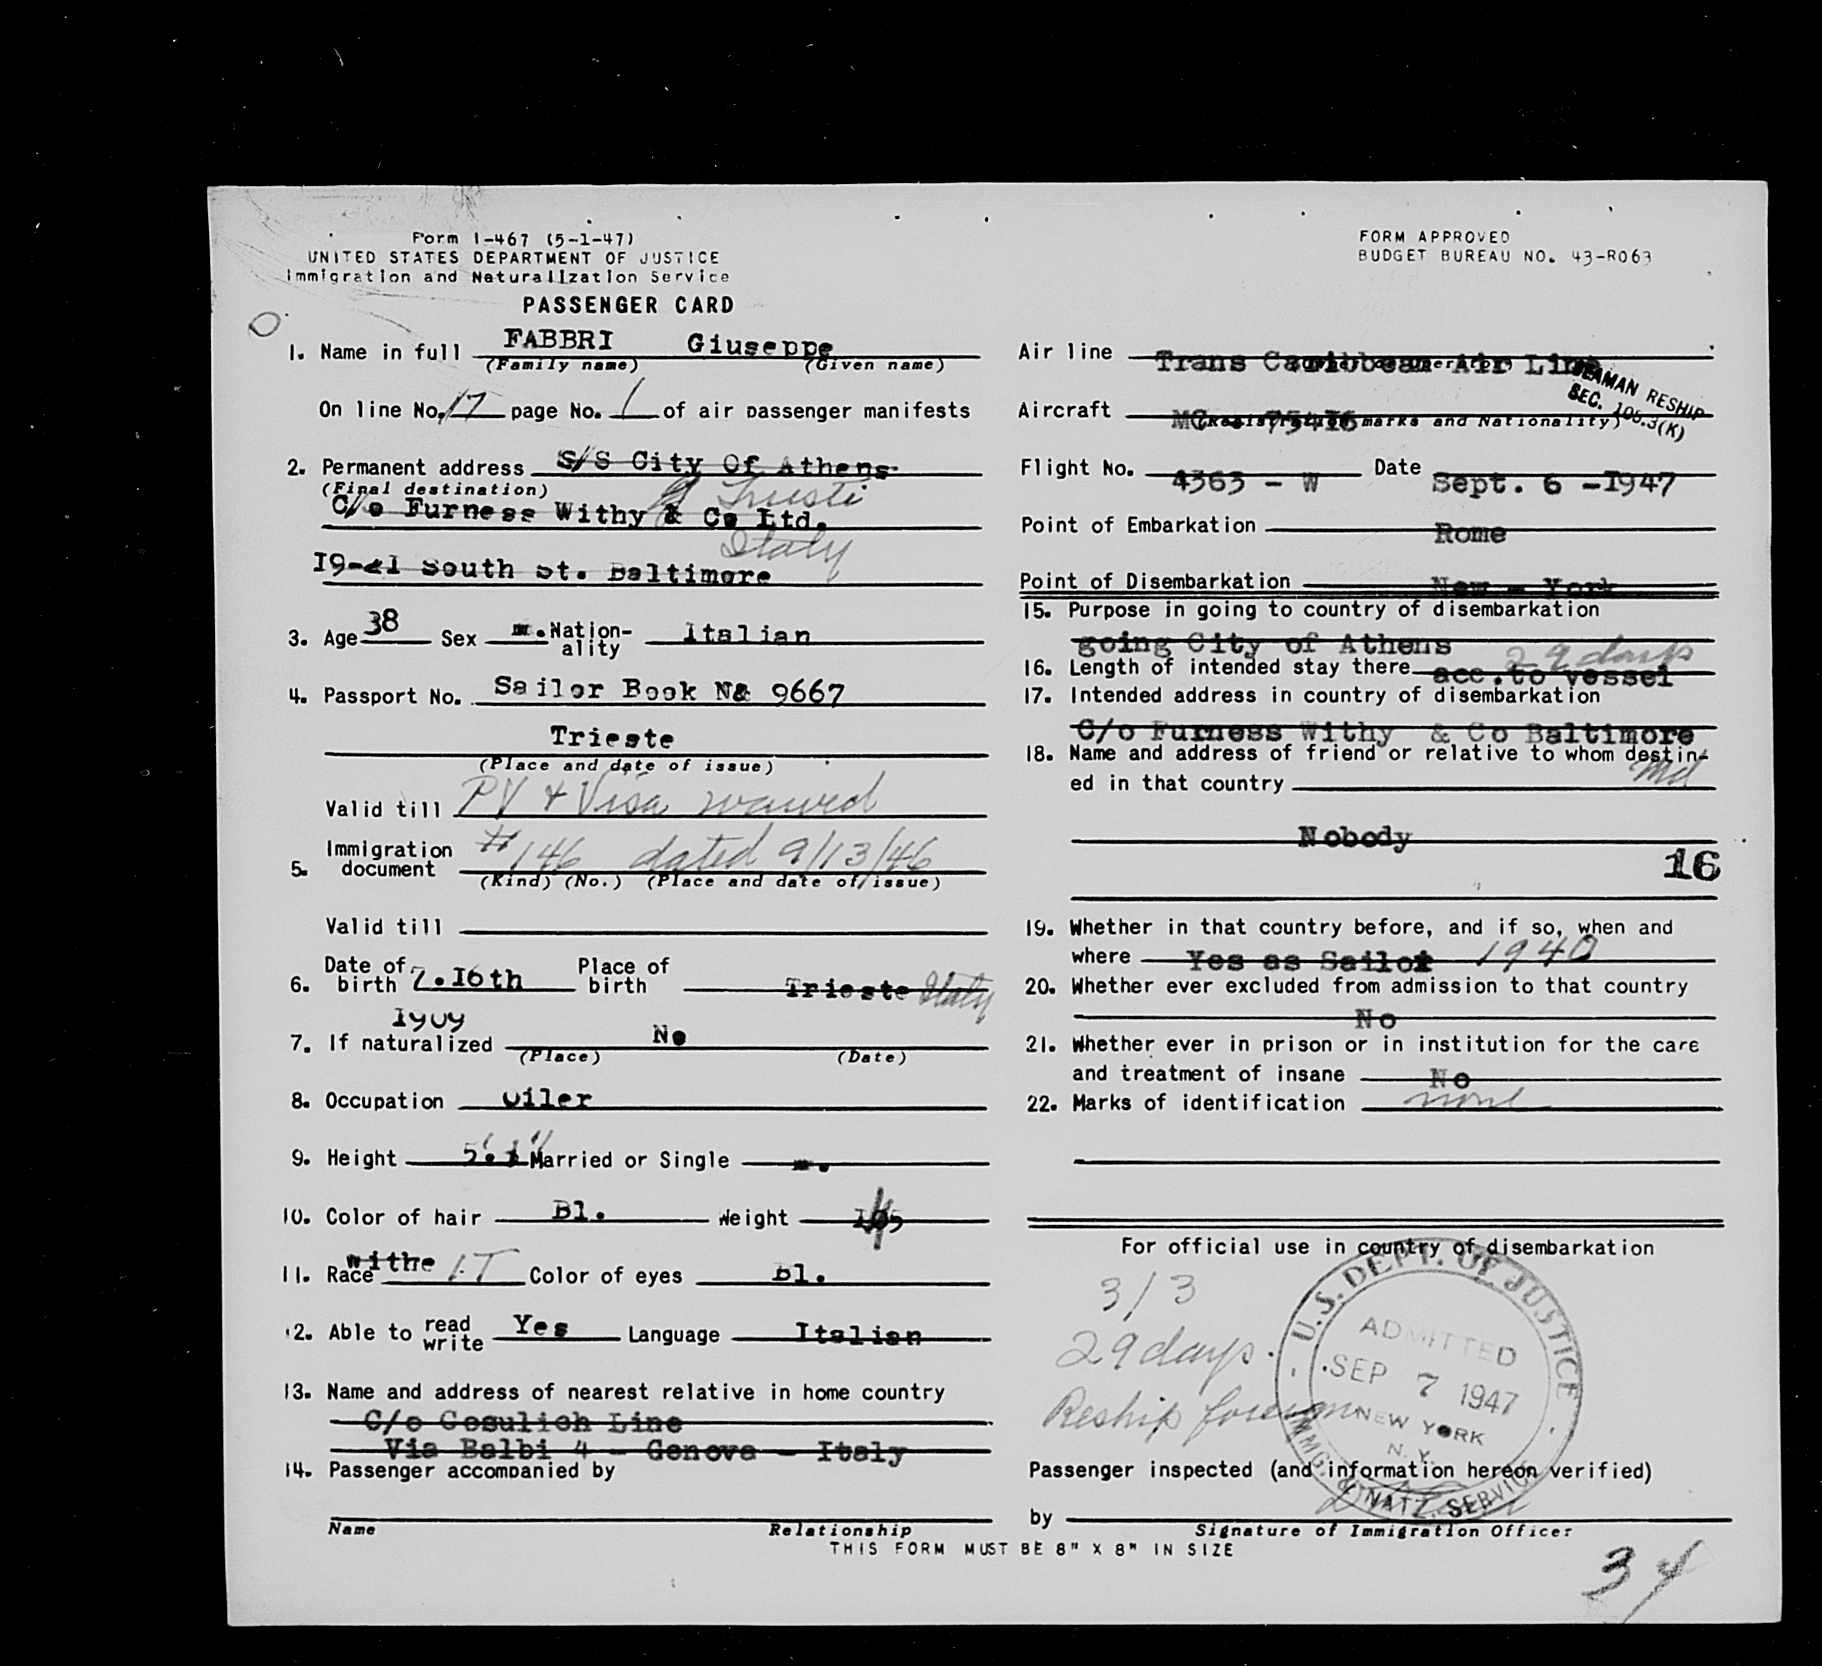 Form I-467 (5-1-47)
UNITED STATES DEPARTMENT OF JUSTICE
Immigration and Naturalization Service
PASSENGER CARD
FORM APPROVED
BUDGET BUREAU NO. 43-R063
1. Name in full FABBRI Giuseppe
(Family name) (Given name)
On line No. 17 page No. 1 of air passenger manifests
2. Permanent address S/S City Of Athens
(Final destination)
C/o Furness Withy & Co Ltd.
Italy
19-21 South St. Baltimore
3. Age 38 Sex m. Nationality Italian
4. Passport No. Sailor Book N& 9667
Trieste
(Place and date of issue)
Valid till PV + Visa waived
5. Immigration document #146 dated 9/13/46
(Kind) (No.) (Place and date of issue)
Valid till
6. Date of birth 7.I6th Place of birth Trieste Italy
I909
7. If naturalized No
(Place) (Date)
8. Occupation Oiler
9. Height 5'. Married or Single m.
10. Color of hair Bl. Weight
11. Race withe I.T Color of eyes Bl.
12. Able to read write Yes Language Italian
13. Name and address of nearest relative in home country
C/o Cosulich Line
Via Balbi 4 - Genova - Italy
14. Passenger accompanied by
Name Relationship
Air line Trans Caribbean Air Line
SEAMAN RESHIP
SEC. 106.3(K)
Aircraft MC - 75416
(Registration marks and Nationality)
Flight No. 4363 - W Date Sept. 6 -I947
Point of Embarkation Rome
Point of Disembarkation New - York
15. Purpose in going to country of disembarkation
going City of Athens
16. Length of intended stay there acc.to vessel 29 days
17. Intended address in country of disembarkation
C/o Furness Withy & Co Baltimore
Md
18. Name and address of friend or relative to whom destined in that country
Nobody
16
19. Whether in that country before, and if so, when and
where Yes as Sailor 1940
20. Whether ever excluded from admission to that country
No
21. Whether ever in prison or in institution for the care
and treatment of insane No
22. Marks of identification none
For official use in country of disembarkation
3/3
29 days.
Reship foreign
U.S. DEPT. OF JUSTICE
ADMITTED
SEP 7 1947
NEW YORK
N.Y.
IMMG. & NATZ. SERVICE
Passenger inspected (and information hereon verified)
by
Signature of Immigration Officer
THIS FORM MUST BE 8" X 8" IN SIZE
34